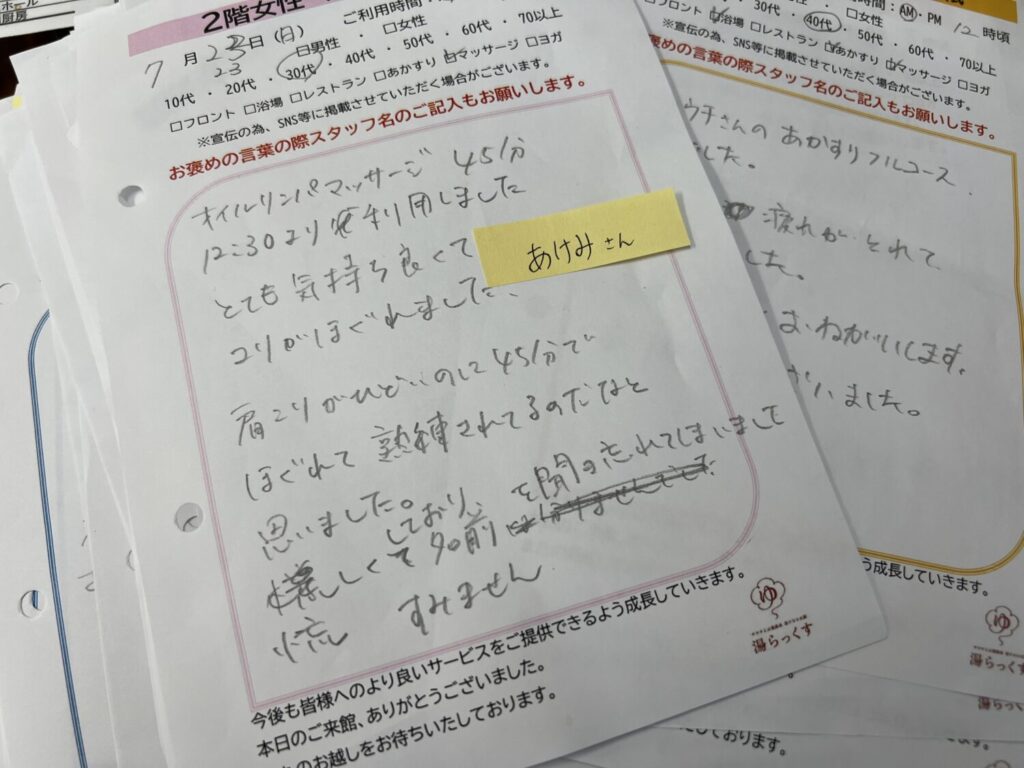 ホール
厨房
2階女性
ご利用時間:
7月23日(月)
23
□男性 ・ □女性
10代 ・ 20代 ・ 30代 ・ 40代 ・ 50代 ・ 60代 ・ 70以上
□フロント □浴場 □レストラン □あかすり □マッサージ □ヨガ
※宣伝の為、SNS等に掲載させていただく場合がございます。
お褒めの言葉の際スタッフ名のご記入もお願いします。
オイルリンパマッサージ 45分
12:30より利用しました
とても気持ち良くて
コリがほぐれました、
あけみさん
肩こりがひどいのに45分で
ほぐれて 熟練されてるのだなと
思いました。
慌しくしており、名前を聞き忘れてしまいまして
すみません
今後も皆様へのより良いサービスをご提供できるよう成長していきます。
本日のご来館、ありがとうございました。
のお越しをお待ちいたしております。
湯らっくす
時間:AM・PM 12時頃
・ □女性
30代 ・ 40代 ・ 50代 ・ 60代 ・ 70以上
□フロント □浴場 □レストラン □あかすり □マッサージ □ヨガ
※宣伝の為、SNS等に掲載させていただく場合がございます。
お褒めの言葉の際スタッフ名のご記入もお願いします。
ウチさんの あかすりフルコース
した。
疲れがとれて
した。
おねがいします。
いました。
う成長していきます。
ゆ
湯らっくす
しております。